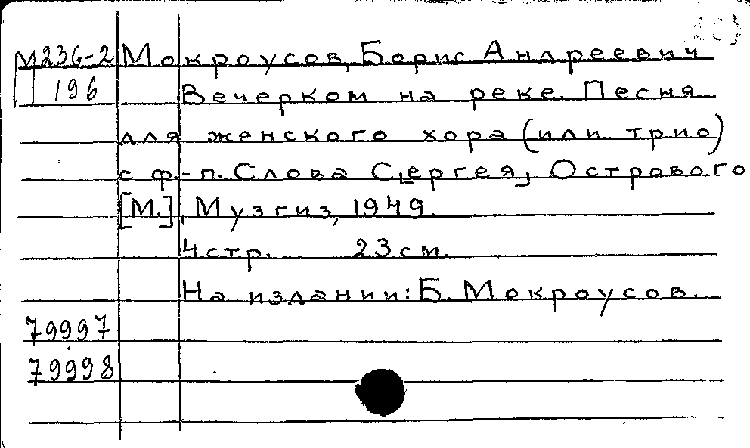 М236-2 Мокроусов, Борис Андреевич
196 Вечерком на реке. Песня
для женского хора (или трио)
с ф.-п. Слова С[ергея] Острового
[М.], Музгиз, 1949.
4 стр. 23 см.
На издании: Б. Мокроусов.
79997
79998